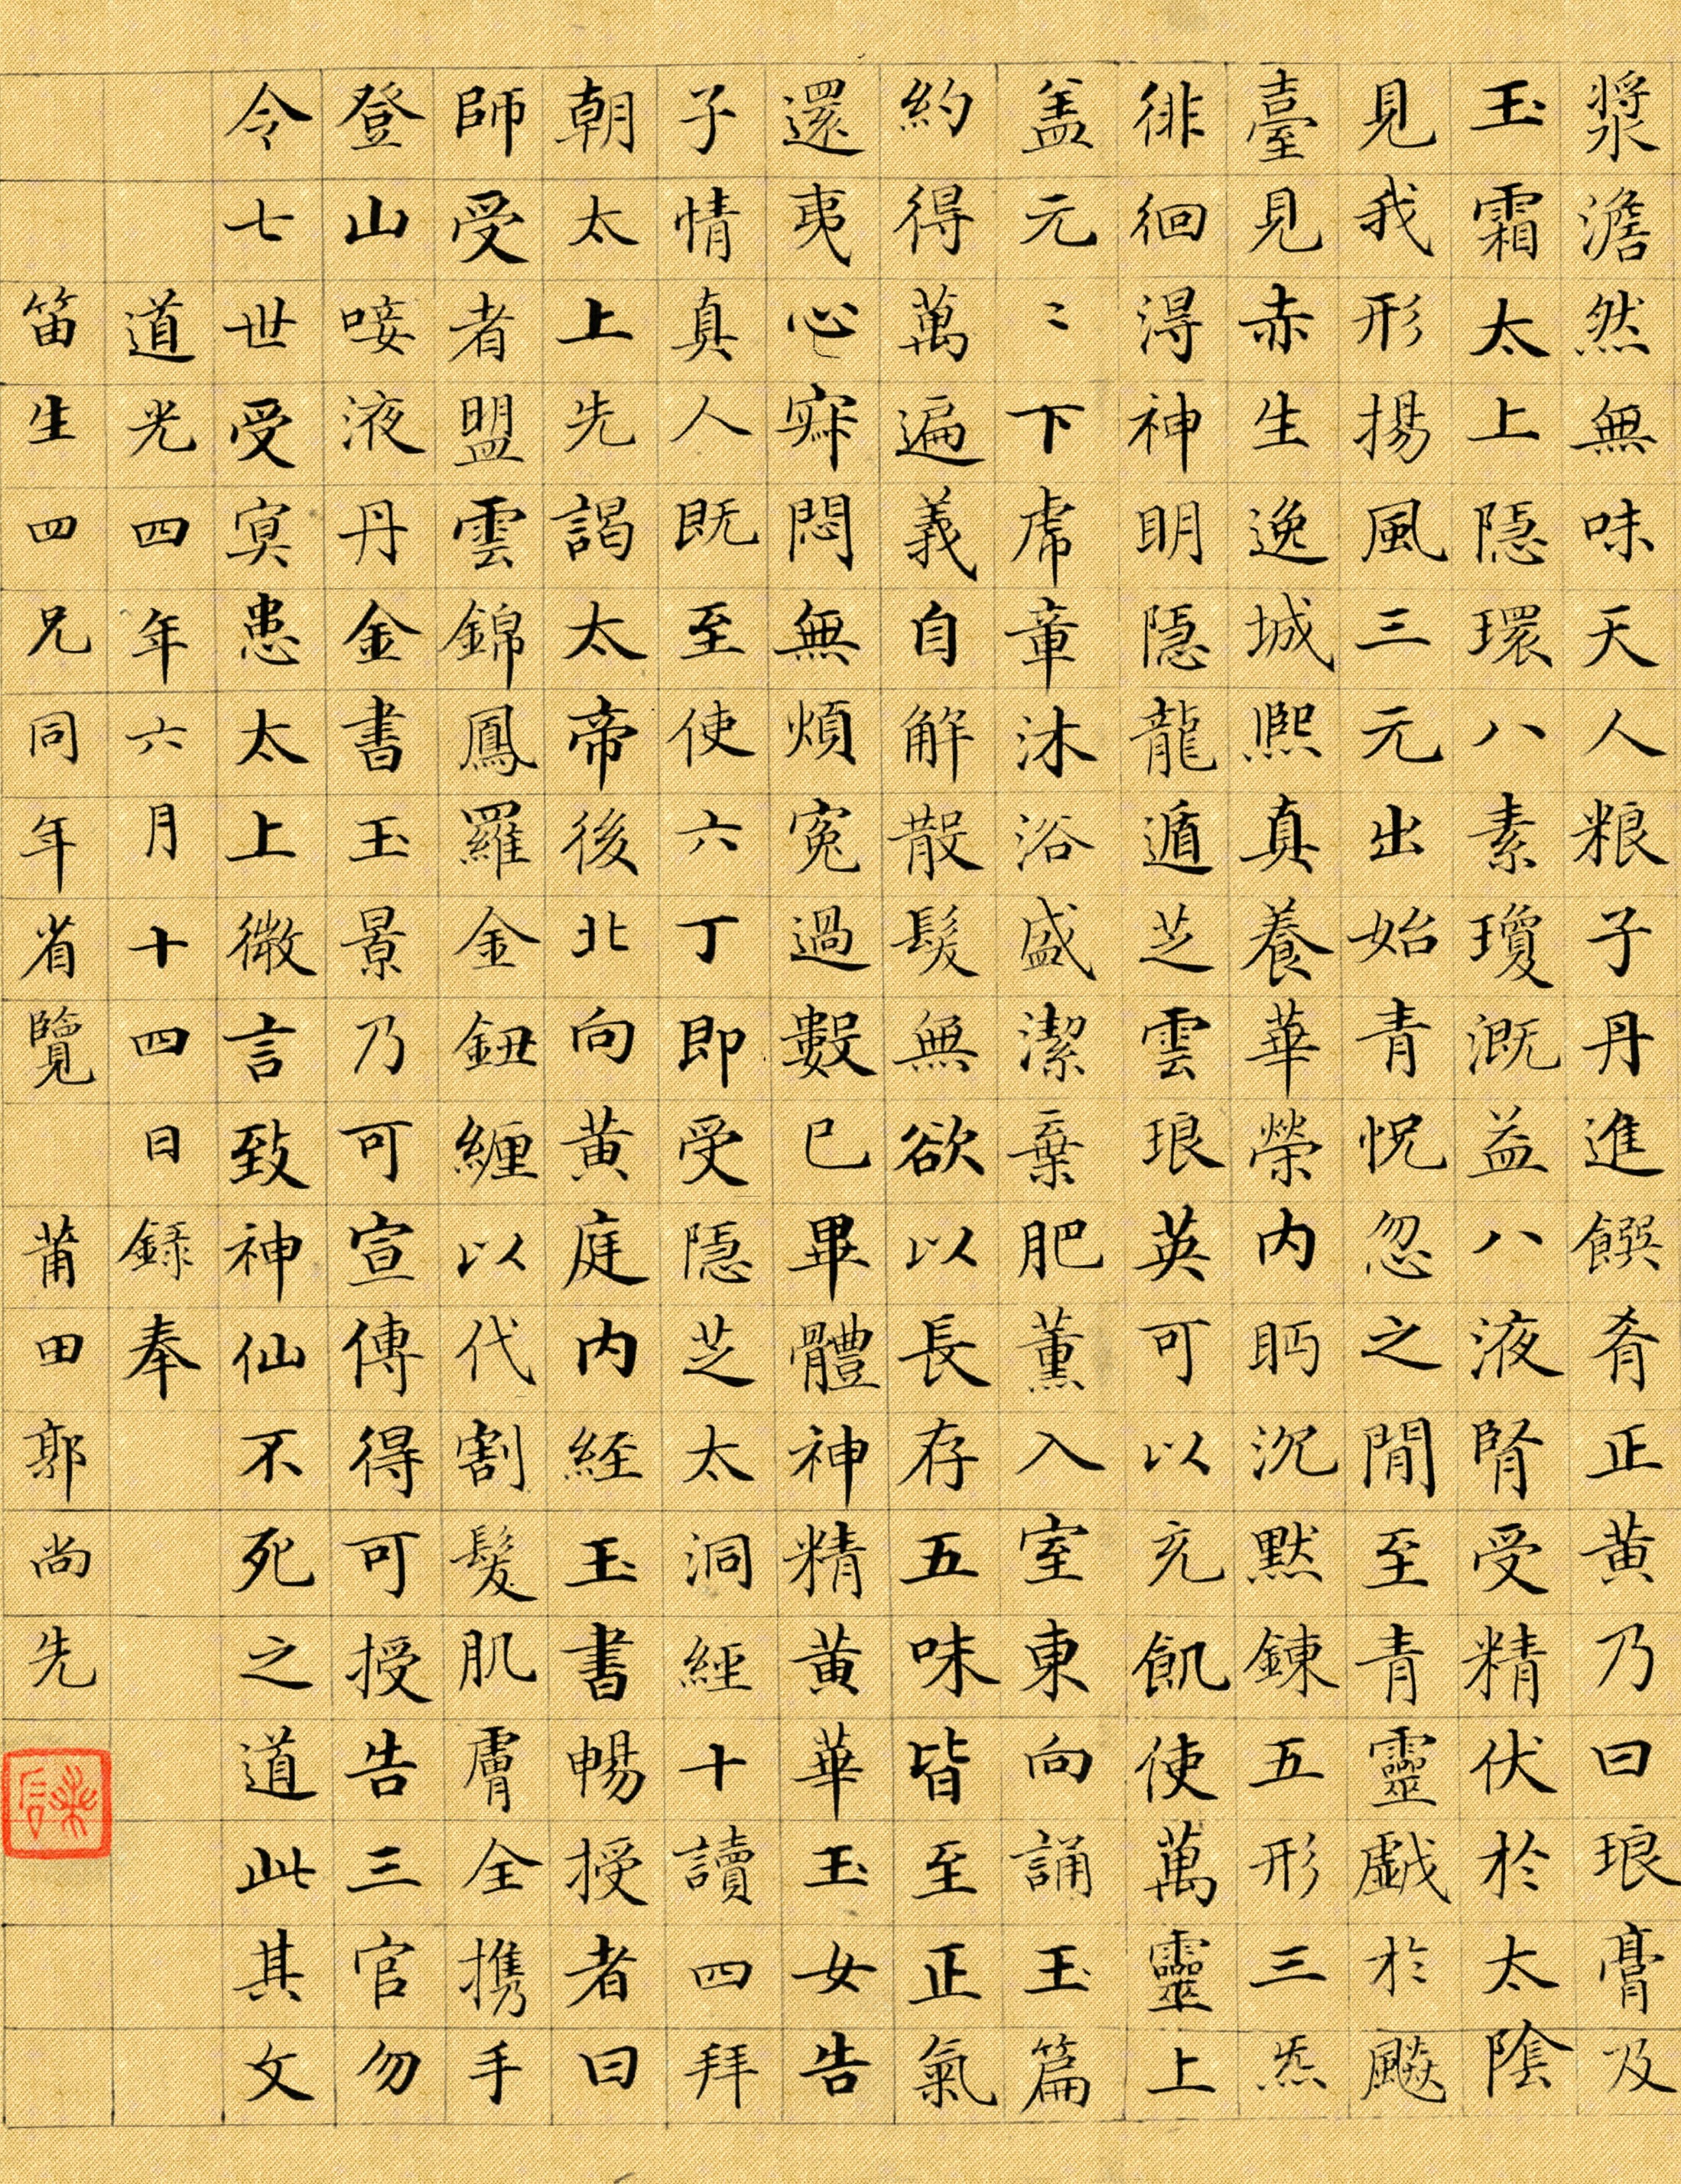 漿澹然無味天人粮子丹進饌肴正黃乃曰琅膏及
玉霜太上隱環八素瓊溉益八液腎受精伏於太陰
見我形揚風三元出始青怳忽之閒至青靈戯於飈
臺見赤生逸城熙真養華榮内眄沉默鍊五形三炁
徘徊淂神明隱龍遁芝雲琅英可以充飢使萬靈上
盖元〻下虎章沐浴盛潔棄肥薰入室東向誦玉篇
約得萬遍義自解散髮無欲以長存五味皆至正氣
還夷心寂悶無煩寃過數已畢體神精黃華玉女告
子情真人既至使六丁即受隱芝太洞經十讀四拜
朝太上先謁太帝後北向黃庭内経玉書暢授者曰
師受者盟雲錦鳳羅金鈕纏以代割髮肌膚全携手
登山唼液丹金書玉景乃可宣傳得可授告三官勿
令七世受冥患太上微言致神仙不死之道此其文
道光四年六月十四日録奉
笛生四兄同年省覽 莆田郭尚先